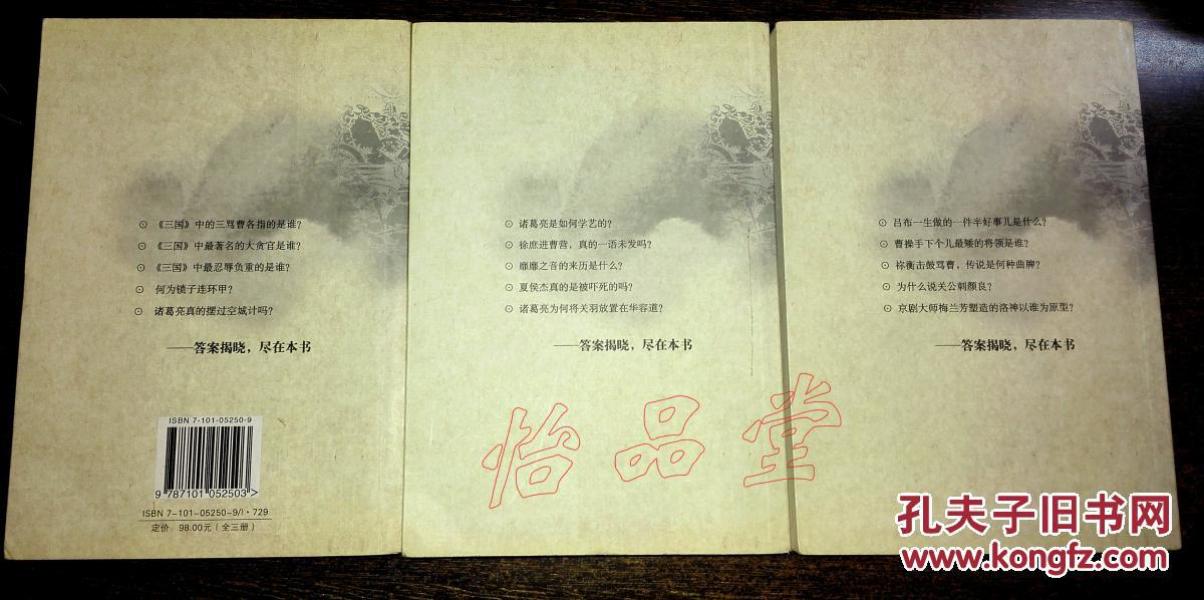 ⊙ 《三国》中的三骂曹各指的是谁?
⊙ 《三国》中最著名的大贪官是谁?
⊙ 《三国》中最忍辱负重的是谁?
⊙ 何为镜子连环甲?
⊙ 诸葛亮真的摆过空城计吗?
——答案揭晓，尽在本书
ISBN 7-101-05250-9
9 787101 052503 >
ISBN 7-101-05250-9/I·729
定价 98.00元(全三册)
⊙ 诸葛亮是如何学艺的?
⊙ 徐庶进曹营，真的一语未发吗?
⊙ 靡靡之音的来历是什么?
⊙ 夏侯杰真的是被吓死的吗?
⊙ 诸葛亮为何将关羽放置在华容道?
——答案揭晓，尽在本书
⊙ 吕布一生做的一件半好事儿是什么?
⊙ 曹操手下个儿最矮的将领是谁?
⊙ 祢衡击鼓骂曹，传说是何种曲牌?
⊙ 为什么说关公刺颜良?
⊙ 京剧大师梅兰芳塑造的洛神以谁为原型?
——答案揭晓，尽在本书
怡品堂
孔夫子旧书网
www.kongfz.com